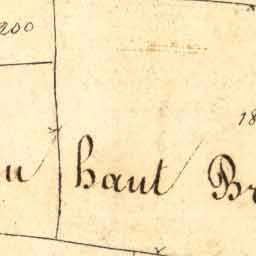 200
18
u haut Br